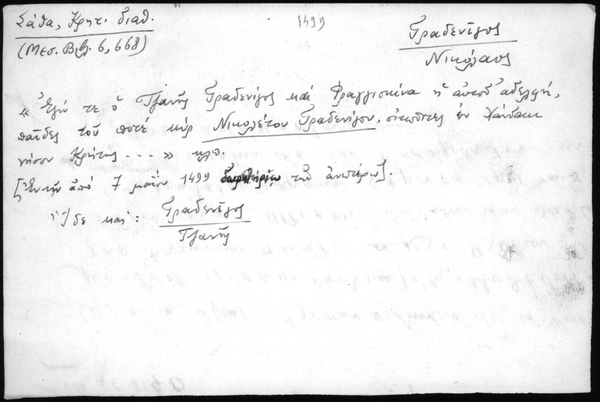 Σάθα, Κρητ. διαθ.
(Μεσ. Βιβλ. 6, 668)
1499
Γραδενῖγος
Νικόλαος
« Ἐγώ τε ὁ Τζανῆς Γραδενῖγος καὶ Φραγγισκίνα ἡ αὐτοῦ ἀδελφή,
παῖδες τοῦ ποτὲ κὺρ Νικολέτου Γραδενίγου, οἰκοῦντες ἐν Χάνδακι
νήσου Κρήτης ... » κτλ.
[Ἐν τῇ ἀπὸ 7 μαΐου 1499 τῶν
Ἴδε καὶ: Γραδενῖγος
Τζανῆς